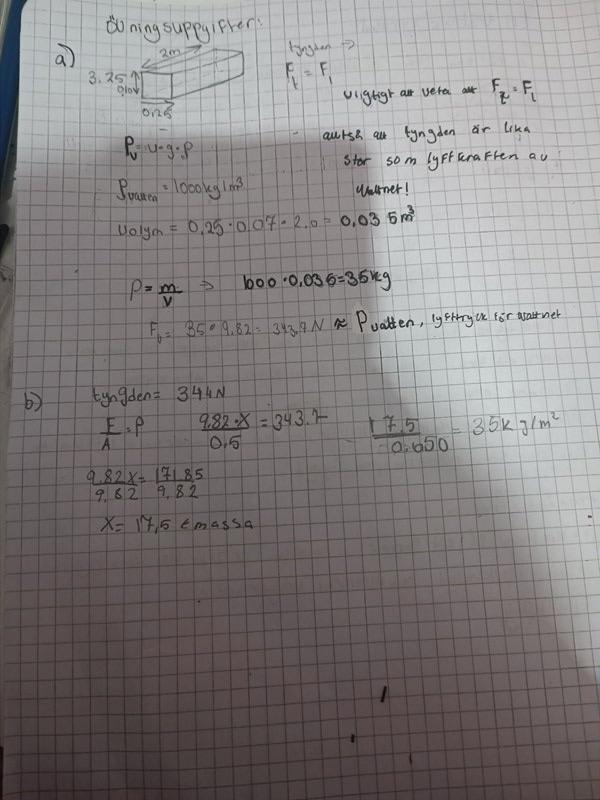 Övningsuppgifter:
a)
2m
3.25
0,10m
0,25
tyngden ⇒
F_t = F_l
viktigt att veta att F_t = F_l
alltså att tyngden är lika
stor som lyftkraften av
vattnet!
P_v = v·g·ρ
ρvatten = 1000kg/m³
volym = 0,25·0,07·2,0 = 0,035m³
ρ = m/v ⇒ 1000·0,035=35kg
35·9.82 = 343,7 N ≈ Pvatten, lyfttryck för vattnet
b) tyngden = 344N
F/A = P
9.82·X/0.5 = 343.7
17,5/0.650 = 35kg/m²
9.82X/9,82 = 171,85/9,82
X = 17,5 ← massa